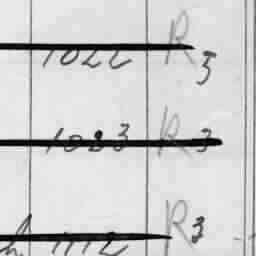 1022 R 5
1083 R 3
1112 R 3